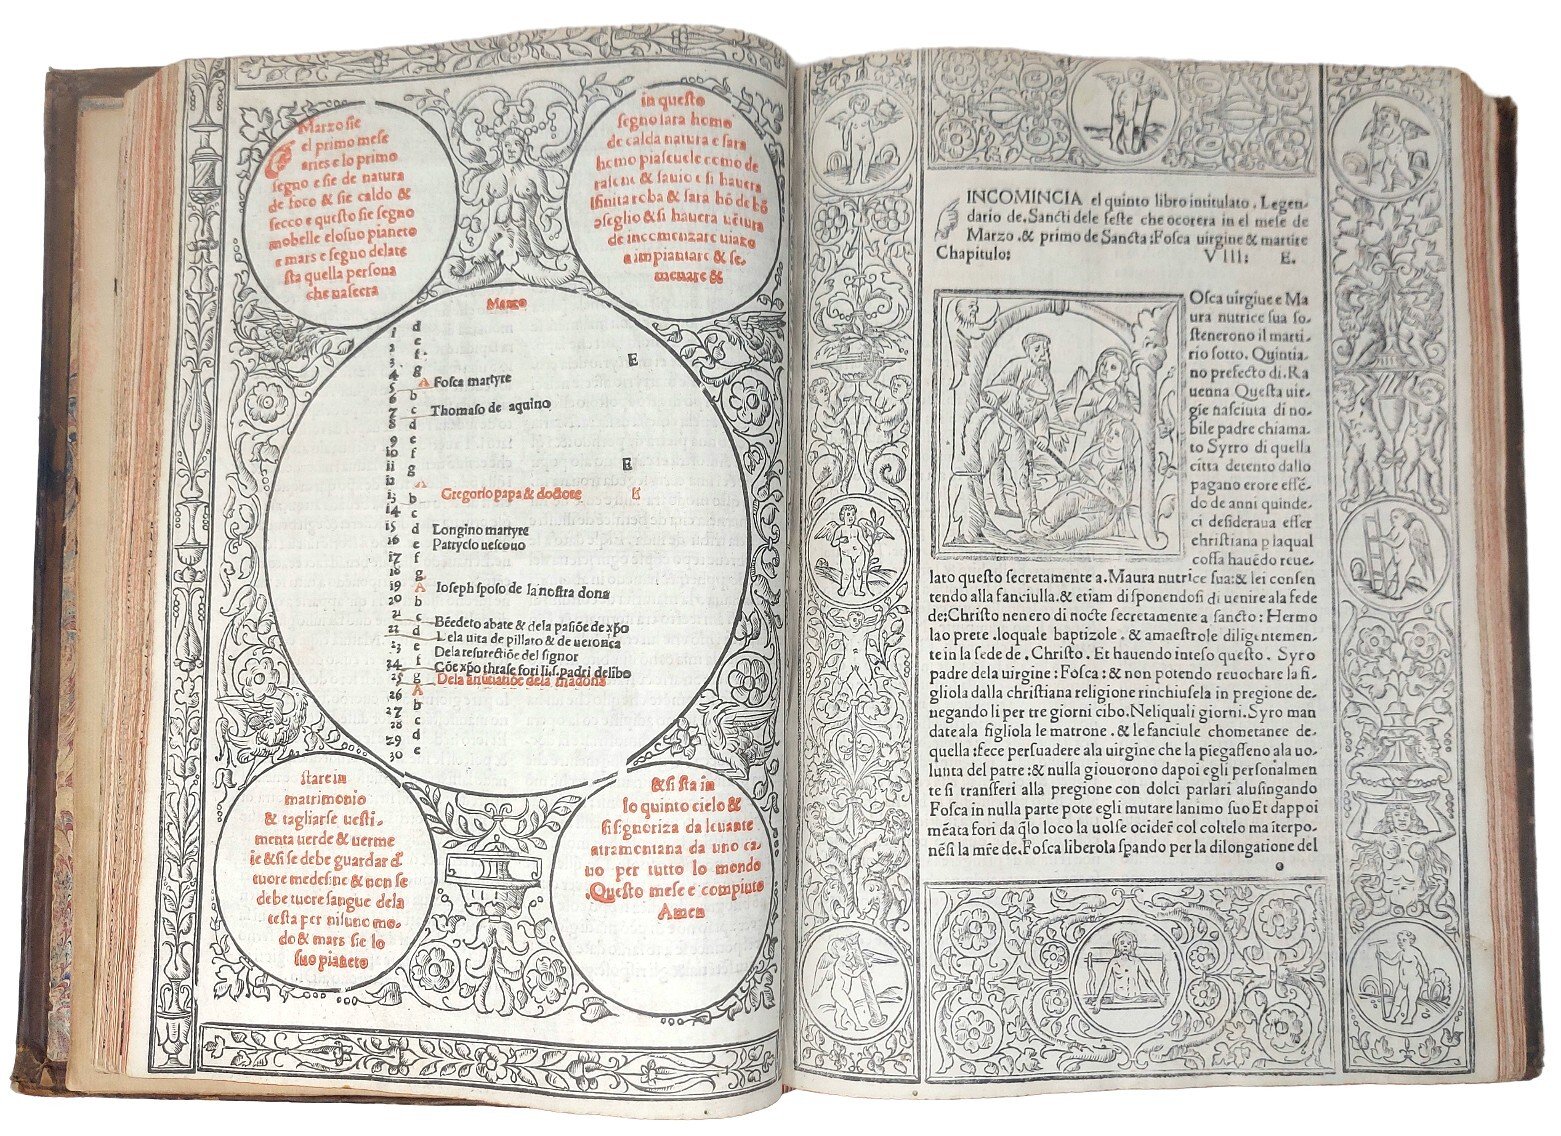 Marzo sie
el primo mese
aries e lo primo
segno e sie de natura
de foco & sie caldo &
secco e questo sie segno
mobelle elosuo pianeto
e mars e segno delate
sta quella persona
che nascera
in questo
segno sara homo
de calda natura e sara
homo piaseuele como de
ualent & sauio e si hauera
ifinita roba & sara hõ de bõ
ↄseglio & si hauera uẽtura
de incomenzare uiazo
a impiantare & se-
menare &
Marzo
1 d
2 e
3 f E
4 g
5 A Fosca martyre
6 b
7 c Thomaso de aquino
8 d
9 e
10 f
11 g E
12 A Gregorio papa & doctore E
13 b
14 c
15 d Longino martyre
16 e Patryclo uescouo
17 f
18 g
19 A Ioseph sposo de la nostra dona
20 b
21 c Bẽedeto abate & dela pasiõe de xp̃o
22 d Lela uita de pillato & de ueronca
23 e Dela resurectiõe del signor
24 f Cõe xp̃o thrase fori li.s.padri delibo
25 g Dela anutiatiõe dela madona
26 A
27 b
28 c
29 d
30 e
stare in
matrimonio
& tagliarse uesti-
menta uerde & uerme
ie & si se debe guardar d'
tuore medesine & non se
debe tuore sangue dela
testa per nisuno mo-
do & mars sie lo
suo pianeto
& si sta in
lo quinto cielo &
si signoriza da leuante
a tramontana da uno ca-
uo per tutto lo mondo
.Questo mese e' compiuto
Amen
INCOMINCIA el quinto libro intitulato. Legen-
dario de. Sancti dele feste che ocorera in el mese de
Marzo .& primo de Sancta: Fosca uirgine & martire
Chapitulo: VIII: E.
Osca uirgiue e Ma
ura nutrice sua so-
stenerono il marti-
rio sotto. Quintia
no prefecto di. Ra
uenna Questa uir-
gie nasciuta di no-
bile padre chiama-
to Syrro di quella
citta detento dallo
pagano erore essẽ-
do de anni quinde-
ci desideraua esser
christiana p laqual
cossa hauẽdo reue-
lato questo secretamente a. Maura nutrice sua:& lei consen
tendo alla fanciulla.& etiam disponendosi di uenire ala fede
de:Christo nenero di nocte secretamente a sancto: Hermo
lao prete .loquale baptizole . & amaestrole diligentemen-
te in la fede de. Christo. Et hauendo inteso questo. Syro
padre dela uirgine: Fosca: & non potendo reuochare la fi-
gliola dalla christiana religione rinchiusela in pregione de-
negando li per tre giorni cibo. Neliquali giorni. Syro man
date ala figliola le matrone. & le fanciule chometance de-
quella :fece persuadere ala uirgine che la piegasseno ala uo-
lunta del patre:& nulla giouorono dapoi egli personalmen
te si transferi alla pregione con dolci parlari alusingando
Fosca in nulla parte pote egli mutare lanimo suo Et dappoi
mẽata fori da q̃lo loco la uolse ocider̃ col coltelo ma iterpo-
nẽsi la mr̃e de. Fosca liberola spando per la dilongatione del